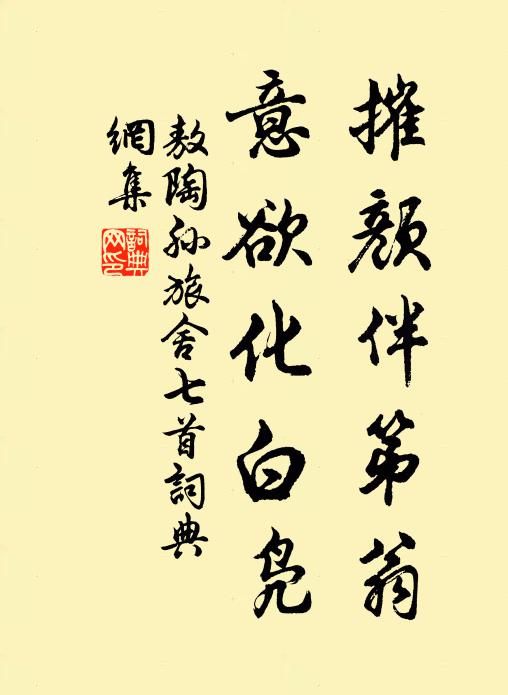 摧颜伴第翁
意欲化白凫
敖陶孙旅舍七首詞典
網集
詞典網印